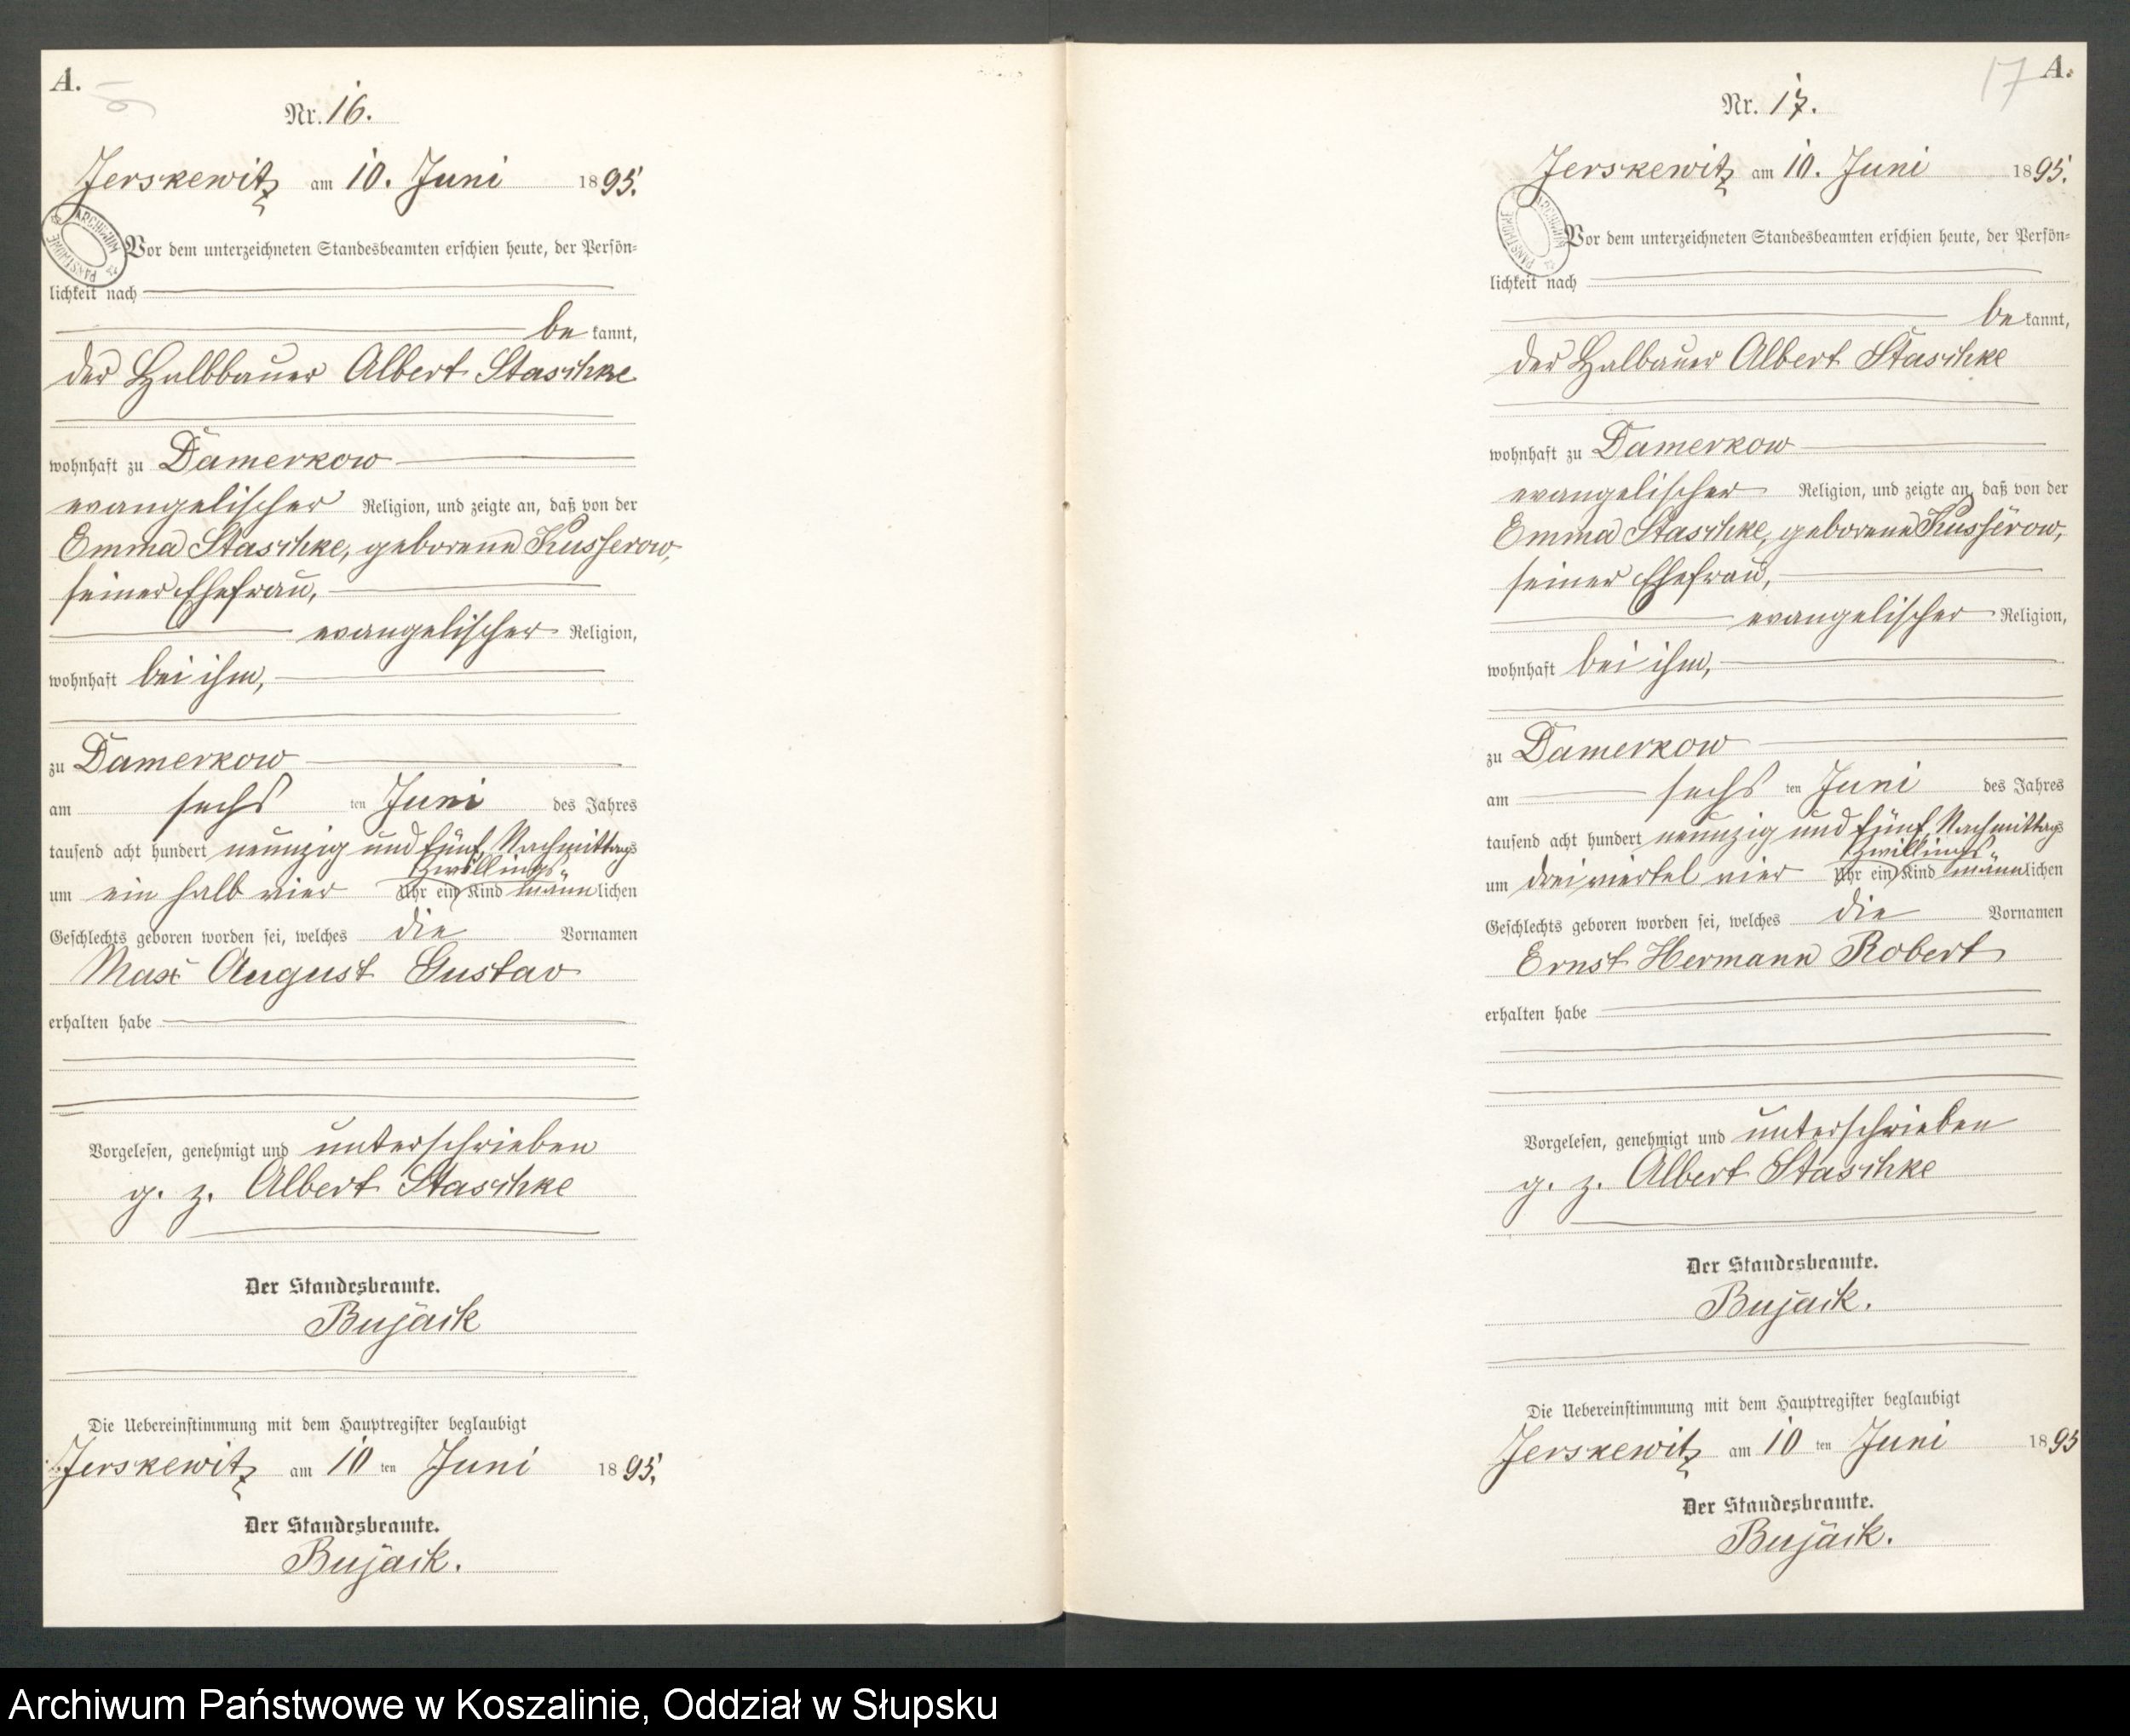 A.
Nr. 16.
Jerskewitz am 10. Juni 1895.
ARCHIWUM PAŃSTWOWE
Vor dem unterzeichneten Standesbeamten erschien heute, der Persön-
lichkeit nach
be kannt,
der Halbbauer Albert Staschke
wohnhaft zu Damerkow
evangelischer Religion, und zeigte an, daß von der
Emma Staschke, geborene Kusserow,
seiner Ehefrau,
evangelischer Religion,
wohnhaft bei ihm,
zu Damerkow
am sechs ten Juni des Jahres
tausend acht hundert neunzig und fünf, Nachmittags
Zwillings-
um ein halb vier Uhr ein Kind männlichen
Geschlechts geboren worden sei, welches die Vornamen
Max August Gustav
erhalten habe
Vorgelesen, genehmigt und unterschrieben
g. z. Albert Staschke
Der Standesbeamte.
Bujack
Die Uebereinstimmung mit dem Hauptregister beglaubigt
Jerskewitz am 10 ten Juni 1895.
Der Standesbeamte.
Bujack.
17 A.
Nr. 17.
Jerskewitz am 10. Juni 1895.
ARCHIWUM PAŃSTWOWE
Vor dem unterzeichneten Standesbeamten erschien heute, der Persön-
lichkeit nach
be kannt,
der Halbauer Albert Staschke
wohnhaft zu Damerkow
evangelischer Religion, und zeigte an, daß von der
Emma Staschke, geborene Kusserow,
seiner Ehefrau,
evangelischer Religion,
wohnhaft bei ihm,
zu Damerkow
am sechs ten Juni des Jahres
tausend acht hundert neunzig und fünf, Nachmittags
Zwillings-
um dreiviertel vier Uhr ein Kind männlichen
Geschlechts geboren worden sei, welches die Vornamen
Ernst Hermann Robert
erhalten habe
Vorgelesen, genehmigt und unterschrieben
g. z. Albert Staschke
Der Standesbeamte.
Bujack.
Die Uebereinstimmung mit dem Hauptregister beglaubigt
Jerskewitz am 10 ten Juni 1895
Der Standesbeamte.
Bujack.
Archiwum Państwowe w Koszalinie, Oddział w Słupsku